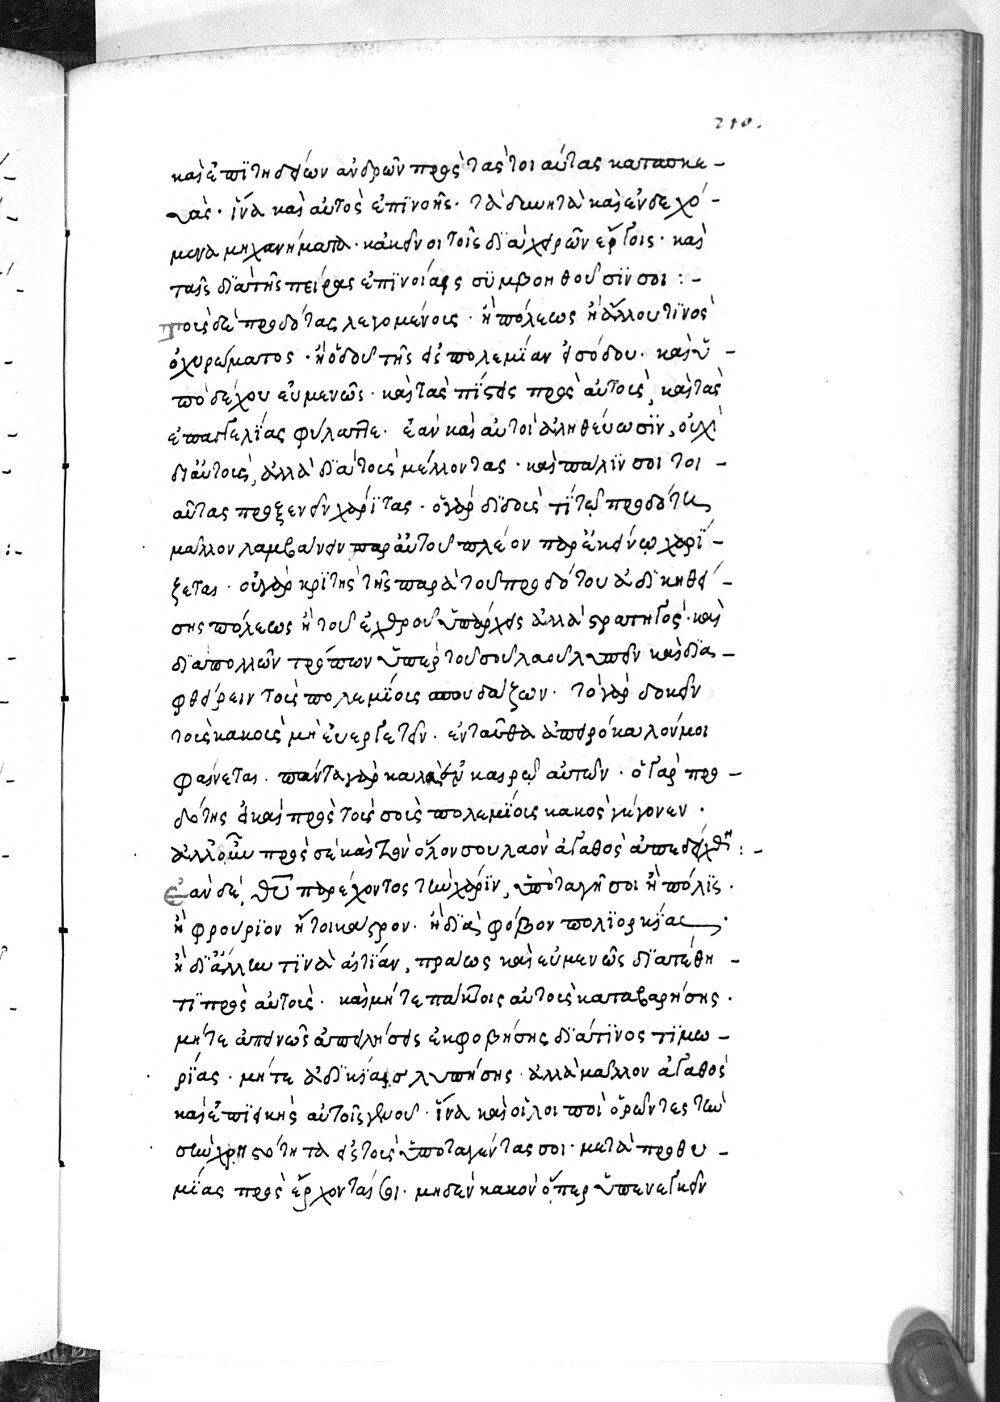 210.
καὶ ἐπϊτηδείων ἀνδρῶν πρὸς τὰς τοιαύτας κατασκε-
υάς· ἵνα καὶ αὐτὸς ἐπϊνοῇς· τὰ δυνητὰ καὶ ἐνδεχό-
μενα μηχανήματα· κἀκεῖνοι τοῖς δϊὰ χειρῶν ἔργοις· καὶ
ταῖς δϊὰ τῆς πείρας ἐπϊνοίαις σϋμβοηθοῦσϊν σοι :-
Τοῖς δὲ προδόταις λεγομένοις· ἢ πόλεως ἢ ἄλλου τϊνὸς
ὀχυρώματος· ἢ ὁδοῦ τῆς εἰς πολεμϊαν εἰσόδου· καὶ ὑ-
ποδέχου εὐμενῶς· καὶ τὰς πίστεις πρὸς αὐτοὺς, καὶ τὰς
ἐπαγγελϊας φύλαττε· ἐὰν καὶ αὐτοὶ ἀληθεύωσϊν, οὐχὶ
δι' αὐτοὺς, ἀλλὰ δϊὰ τοὺς μέλλοντας· καὶ πάλϊν σοι τοι-
αύτας προξενεῖν χάρϊτας· ὁ γὰρ δϊδοὺς τὶ τῷ προδότῃ
μᾶλλον λαμβάνειν παρ' αὐτοῦ πλέον παρ' ἐκείνῳ χαρϊ-
ζεται· οὐ γὰρ κρϊτὴς τῆς παρὰ τοῦ προδότου ἀδϊκηθεί-
σης πόλεως ἢ τοῦ ἐχθροῦ ὑπάρχεις ἀλλὰ στρατηγός· καὶ
δϊὰ πολλῶν τρόπων ὑπὲρ τοῦ σοῦ λαοῦ λυπεῖν καὶ δϊα-
φθείρειν τοὺς πολεμϊους σπουδάζων· τὸ γὰρ δοκεῖν
τοὺς κακοὺς μὴ εὐεργετεῖν· ἐνταῦθα ἀπειρόκαλόν μοι
φαίνεται· πάντα γὰρ καλὰ ἐν καιρῷ αὐτῶν· ὁ γὰρ προ-
δότης εἰ καὶ πρὸς τοὺς σοὺς πολεμϊους κακὸς γέγονεν·
ἀλλ' οὖν πρὸς σὲ καὶ τὸν ὅλον σου λαὸν ἀγαθὸς ἀπεδείχθη :-
Ἐὰν δὲ, θῦ παρέχοντος τὴν χάρϊν, ὑποταγῇ σοι ἢ πόλϊς·
ἢ φρούρϊον ἤτοι κάστρον· ἢ δϊὰ φόβον πολϊορκϊας·
ἢ δϊ' ἄλλην τϊνὰ αἰτϊαν, πράως καὶ εὐμενῶς δϊατέθη-
τϊ πρὸς αὐτούς· καὶ μήτε πάκτοις αὐτοὺς καταβαρήσῃς·
μήτε ἀπηνῶς ἀπειλήσεις ἐκφοβήσῃς δϊά τϊνος τϊμω-
ρϊας· μήτε ἀδϊκϊαις λυπήσῃς· ἀλλὰ μᾶλλον ἀγαθὸς
καὶ ἐπϊεικὴς αὐτοῖς γενοῦ· ἵνα καὶ οἱ λοιποὶ ὁρῶντες τὴν
σὴν χρηστότητα εἰς τοὺς ὑποταγέντας σοι· μετὰ προθυ-
μϊας πρὸς ἔρχονταί σοι· μηδὲν κακὸν ὅπερ ὑπενεγκεῖν